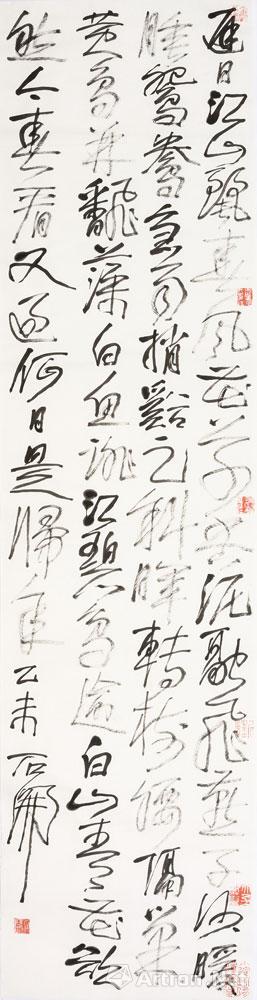 遲日江山麗春風花草香泥融飛燕子沙暖
睡鴛鴦急雨捎谿足斜暉轉樹腰隔巢
黃鳥并翻藻白魚跳江碧鳥逾白山青花欲
然今春看又過何日是歸年乙未石